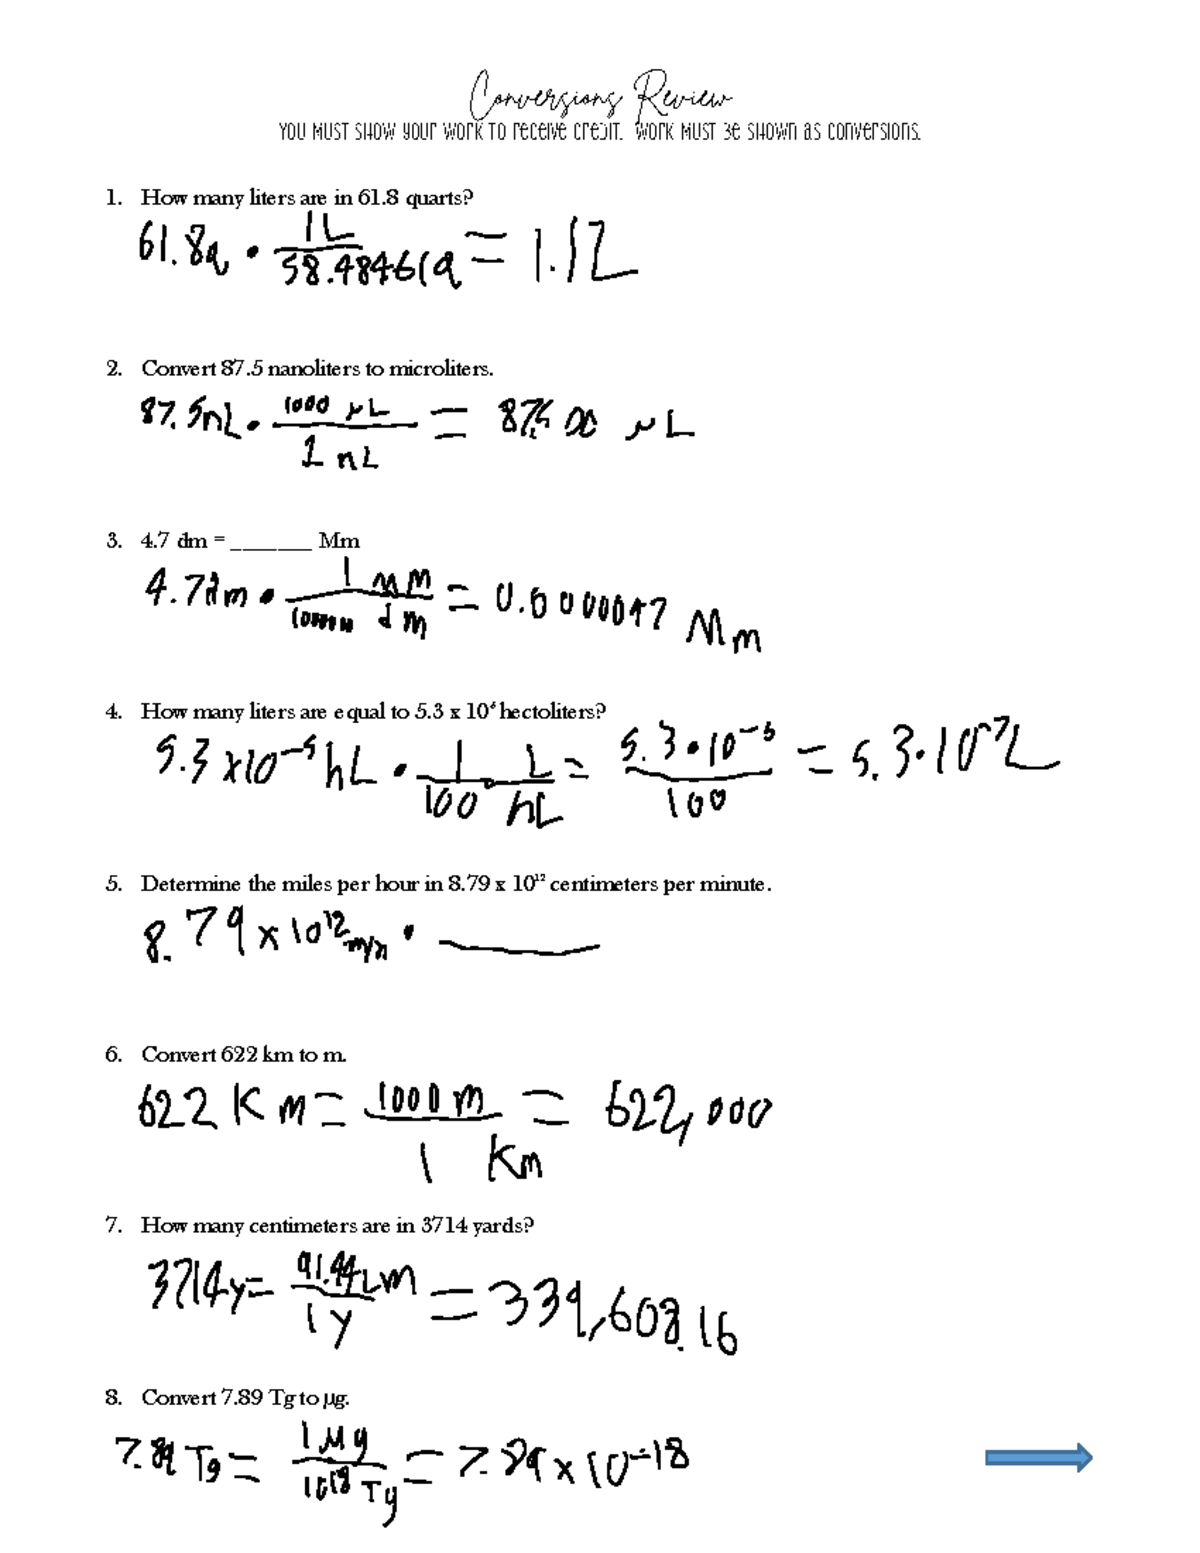 Conversions Review
YOU MUST SHOW YOUR WORK TO RECEIVE CREDIT. WORK MUST BE SHOWN AS CONVERSIONS.
1. How many liters are in 61.8 quarts?
61.8q · 1L / 58.48461q = 1.1L
2. Convert 87.5 nanoliters to microliters.
87.5nL · 1000 μL / 1 nL = 87500 μL
3. 4.7 dm = _______ Mm
4.7dm · 1 Mm / dm = 0.0000047 Mm
4. How many liters are equal to 5.3 x 10 hectoliters?
5.3x10⁻⁵hL · 1/100 · L/hL = 5.3·10⁻⁵/100 = 5.3·10⁻⁷L
5. Determine the miles per hour in 8.79 x 10¹² centimeters per minute.
8.79x10¹² ·
6. Convert 622 km to m.
622 Km = 1000 m / 1 Km = 622,000
7. How many centimeters are in 3714 yards?
3714y = 91.44cm / 1y = 339,608.16
8. Convert 7.89 Tg to μg.
7.89 Tg = 1 μg / 10¹⁸ Tg = 7.89x10⁻¹⁸